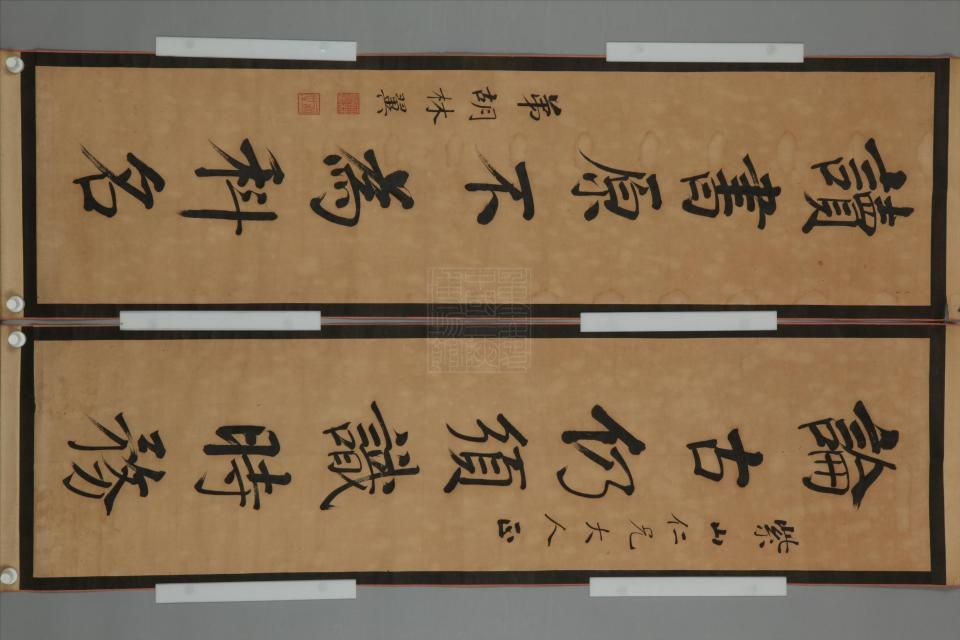 紫山仁兄大人正
論古仍須識時務
讀書原不為科名
弟胡林翼